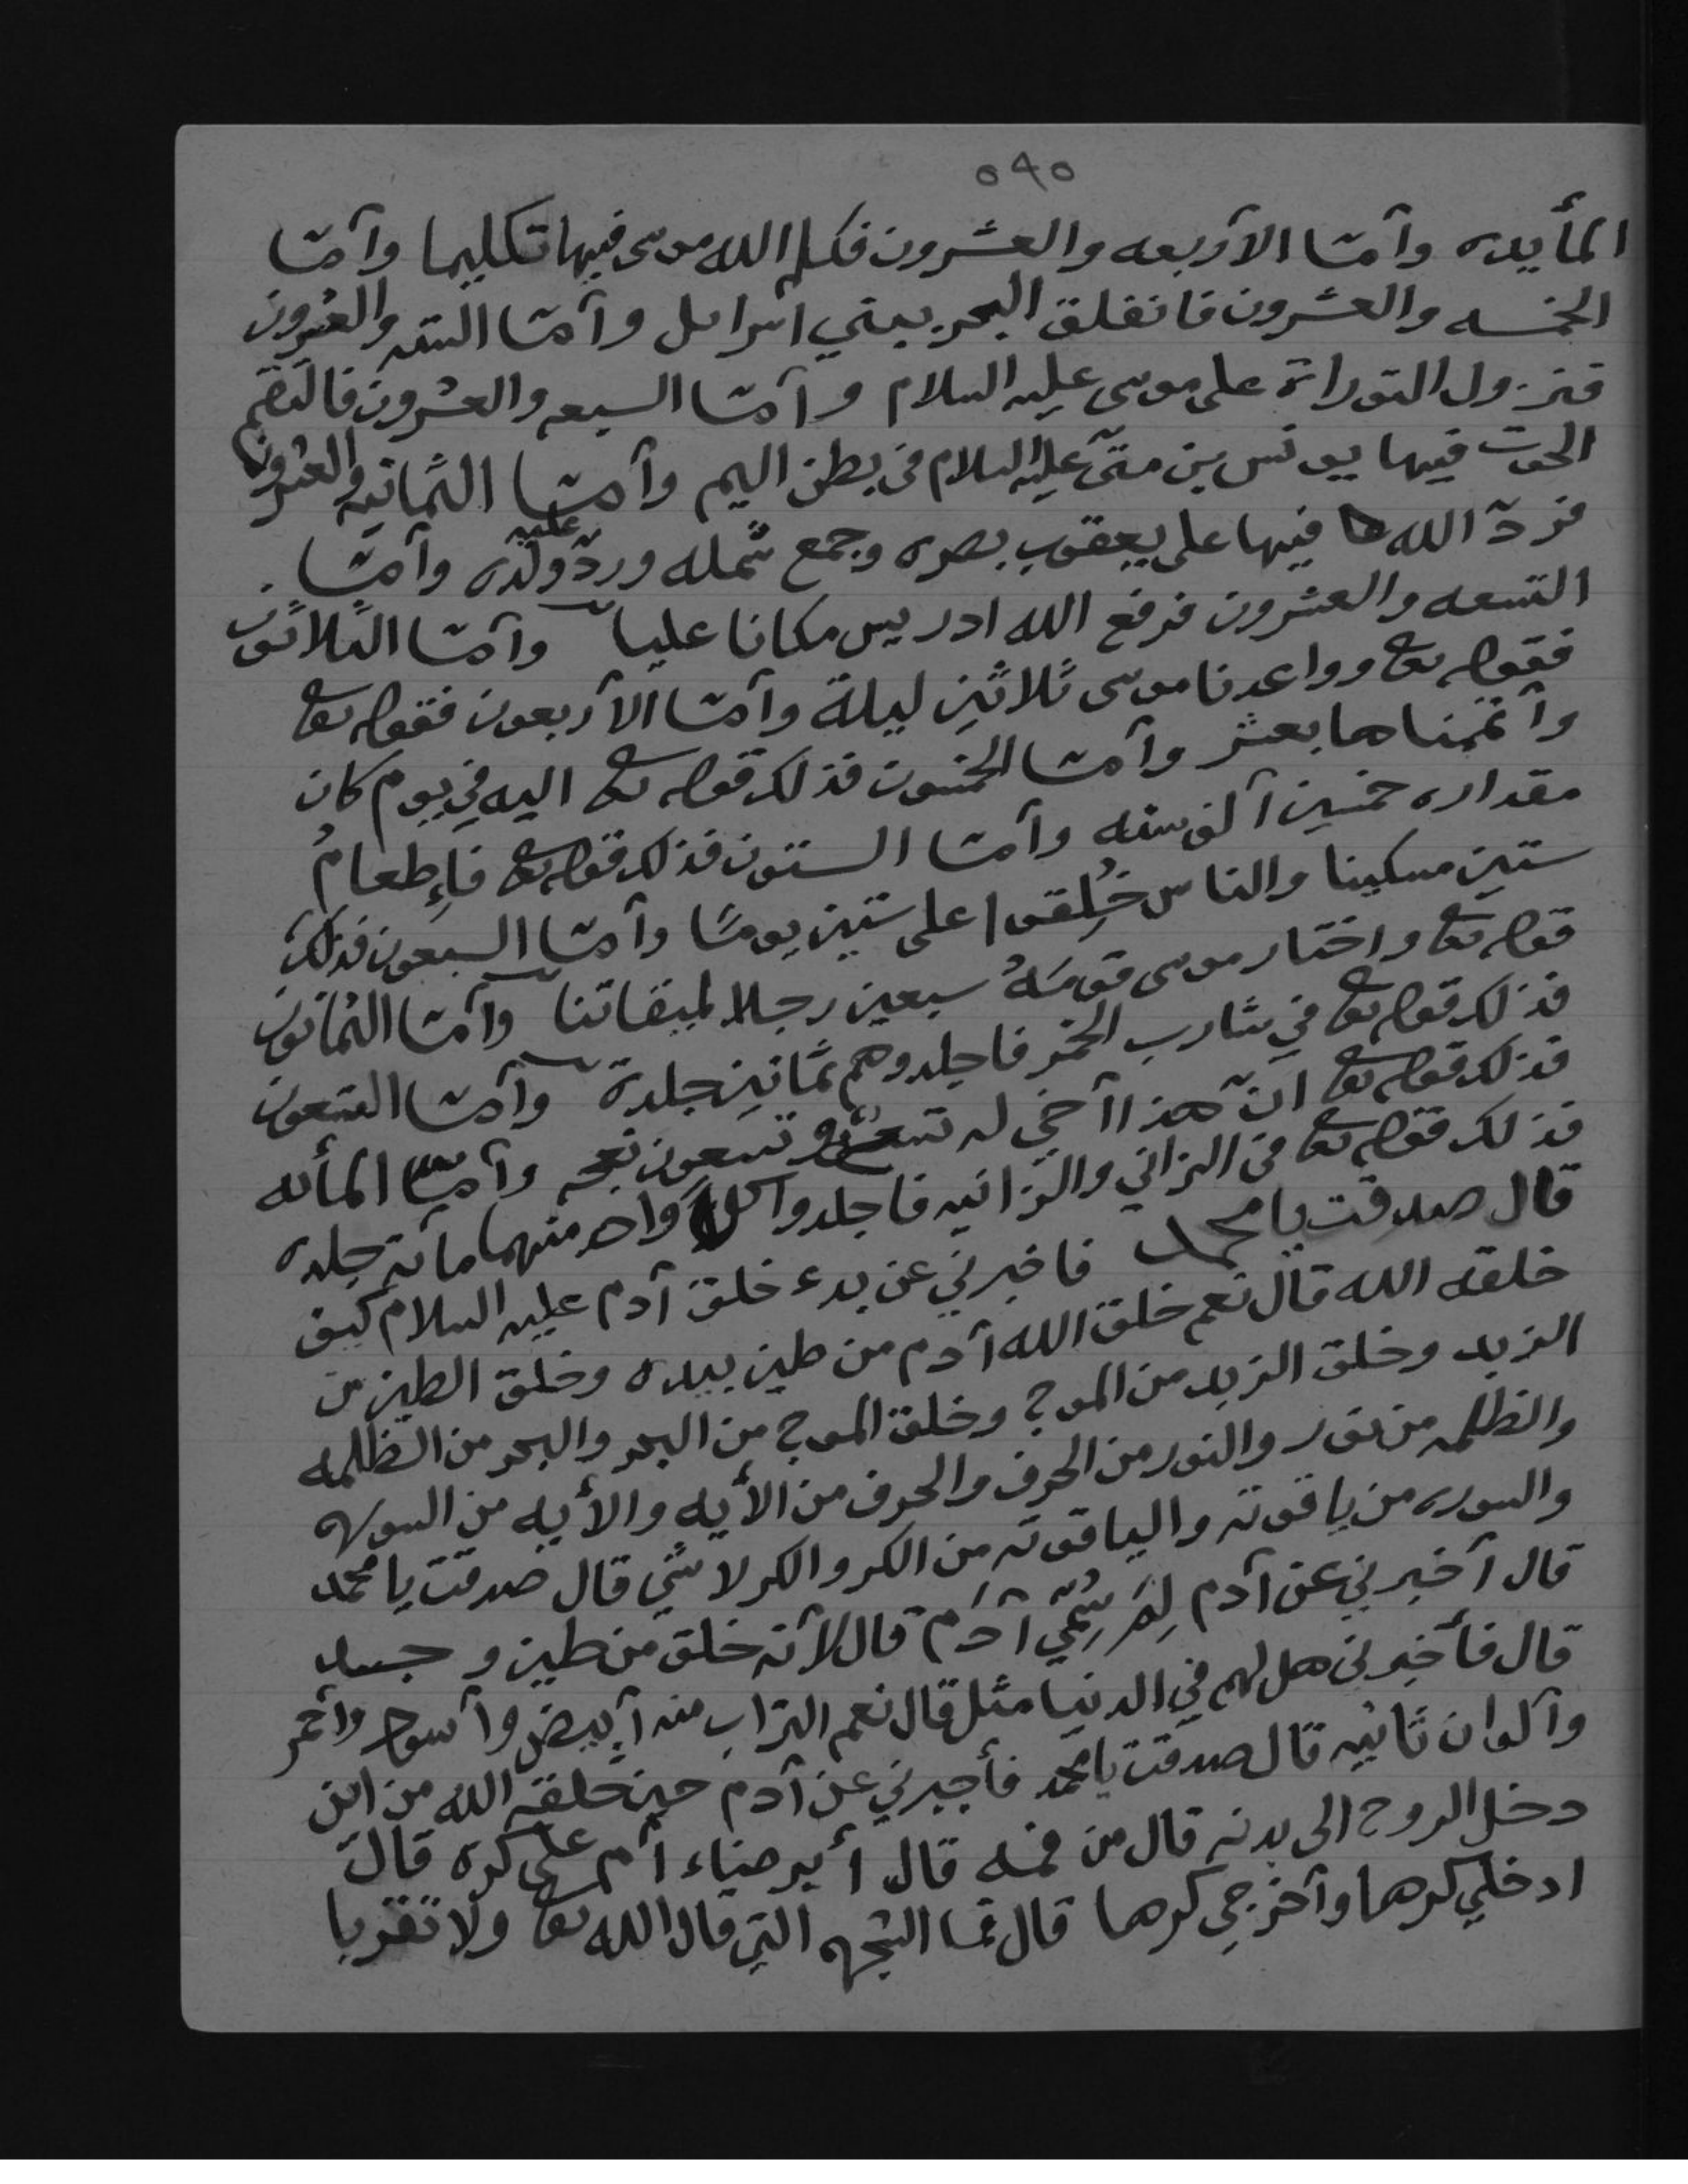 ٥٩٥
المأيده وأمّا الأربعه والعشرون فكلم الله موسى فيها تكليما وأمّا
الخمسه والعشرون فانفلق البحر ببني اسرايل وأمّا السته والعشرون
فنزول التوراة على موسى عليه السلام وأمّا السبعه والعشرون فالتقم
الحوت فيها يونس بن متى عليه السلام في بطن اليم وأمّا الثمانيه والعشرون
فردّ الله فيها على يعقوب بصره وجمع شمله وردّ عليه ولده وأمّا
التسعه والعشرون فرفع الله ادريس مكانا عليا وأمّا الثلاثون
فقوله تعا وواعدنا موسى ثلاثين ليلة وأمّا الأربعون فقوله تعا
وأتممناها بعشر وأمّا الخمسون فذلك قوله تعا اليه في يوم كان
مقداره خمسين ألف سنه وأمّا الستون فذلك قوله تعا فإطعامُ
ستين مسكينا والناس خُلِقوا على ستين يومًا وأمّا السبعون فذلك
قوله تعا واختار موسى قومَهُ سبعين رجلا لميقاتنا وأمّا الثمانون
فذلك قوله تعا في شارب الخمر فاجلدوهم ثمانين جلدة وأمّا التسعون
فذلك قوله تعا انّ هذا أخي له تسع وتسعون نعجه وأمّا المأله
فذلك قوله تعا في الزاني والزانيه فاجلدوا كل واحد منهما مأته جلده
قال صدقت يا محمد فاخبرني عن بدء خلق آدم عليه السلام كيف
خلقه الله قال نعم خلق الله آدم من طين بيده وخلق الطين من
الزبد وخلق الزبد من الموج وخلق الموج من البحر والبحر من الظلمه
والظلمه من نور والنور من الحرف والحرف من الأيه والأيه من السوره
والسوره من ياقوته والياقوته من الكر والكر لا شي قال صدقت يا محمد
قال أخبرني عن آدم لِمَ سُمّي آدَم قال لأنه خلق من طين و جسد
قال فأخبرني هل لهم في الدنيا مثل قال نعم التراب منه أبيض وأسود وأحمر
وألوان ثانيه قال صدقت يا محمد فأخبرني عن آدم حين خلقه الله من اين
دخل الروح الى بدنه قال من فمه قال أبرضاء أم على كره قال
ادخلي كرها وأخرجي كرها قال فما الشجره التي قال الله تعا ولا تقربا